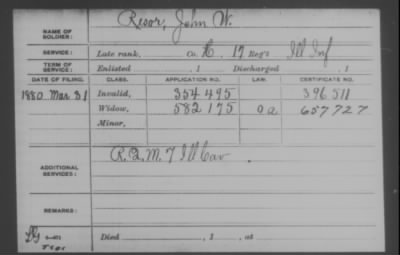 NAME OF SOLDIER: Resor, John W.
SERVICE: Late rank, Co. K, 17 Reg't Ill Inf
TERM OF SERVICE: Enlisted , 1 Discharged , 1
DATE OF FILING. CLASS. APPLICATION NO. LAW. CERTIFICATE NO.
1880 Mar 31 Invalid, 354 495 396 511
Widow, 582 175 O a 657727
Minor,
ADDITIONAL SERVICES: R.Q.M. 7 Ill Cav
REMARKS:
Died , 1 , at